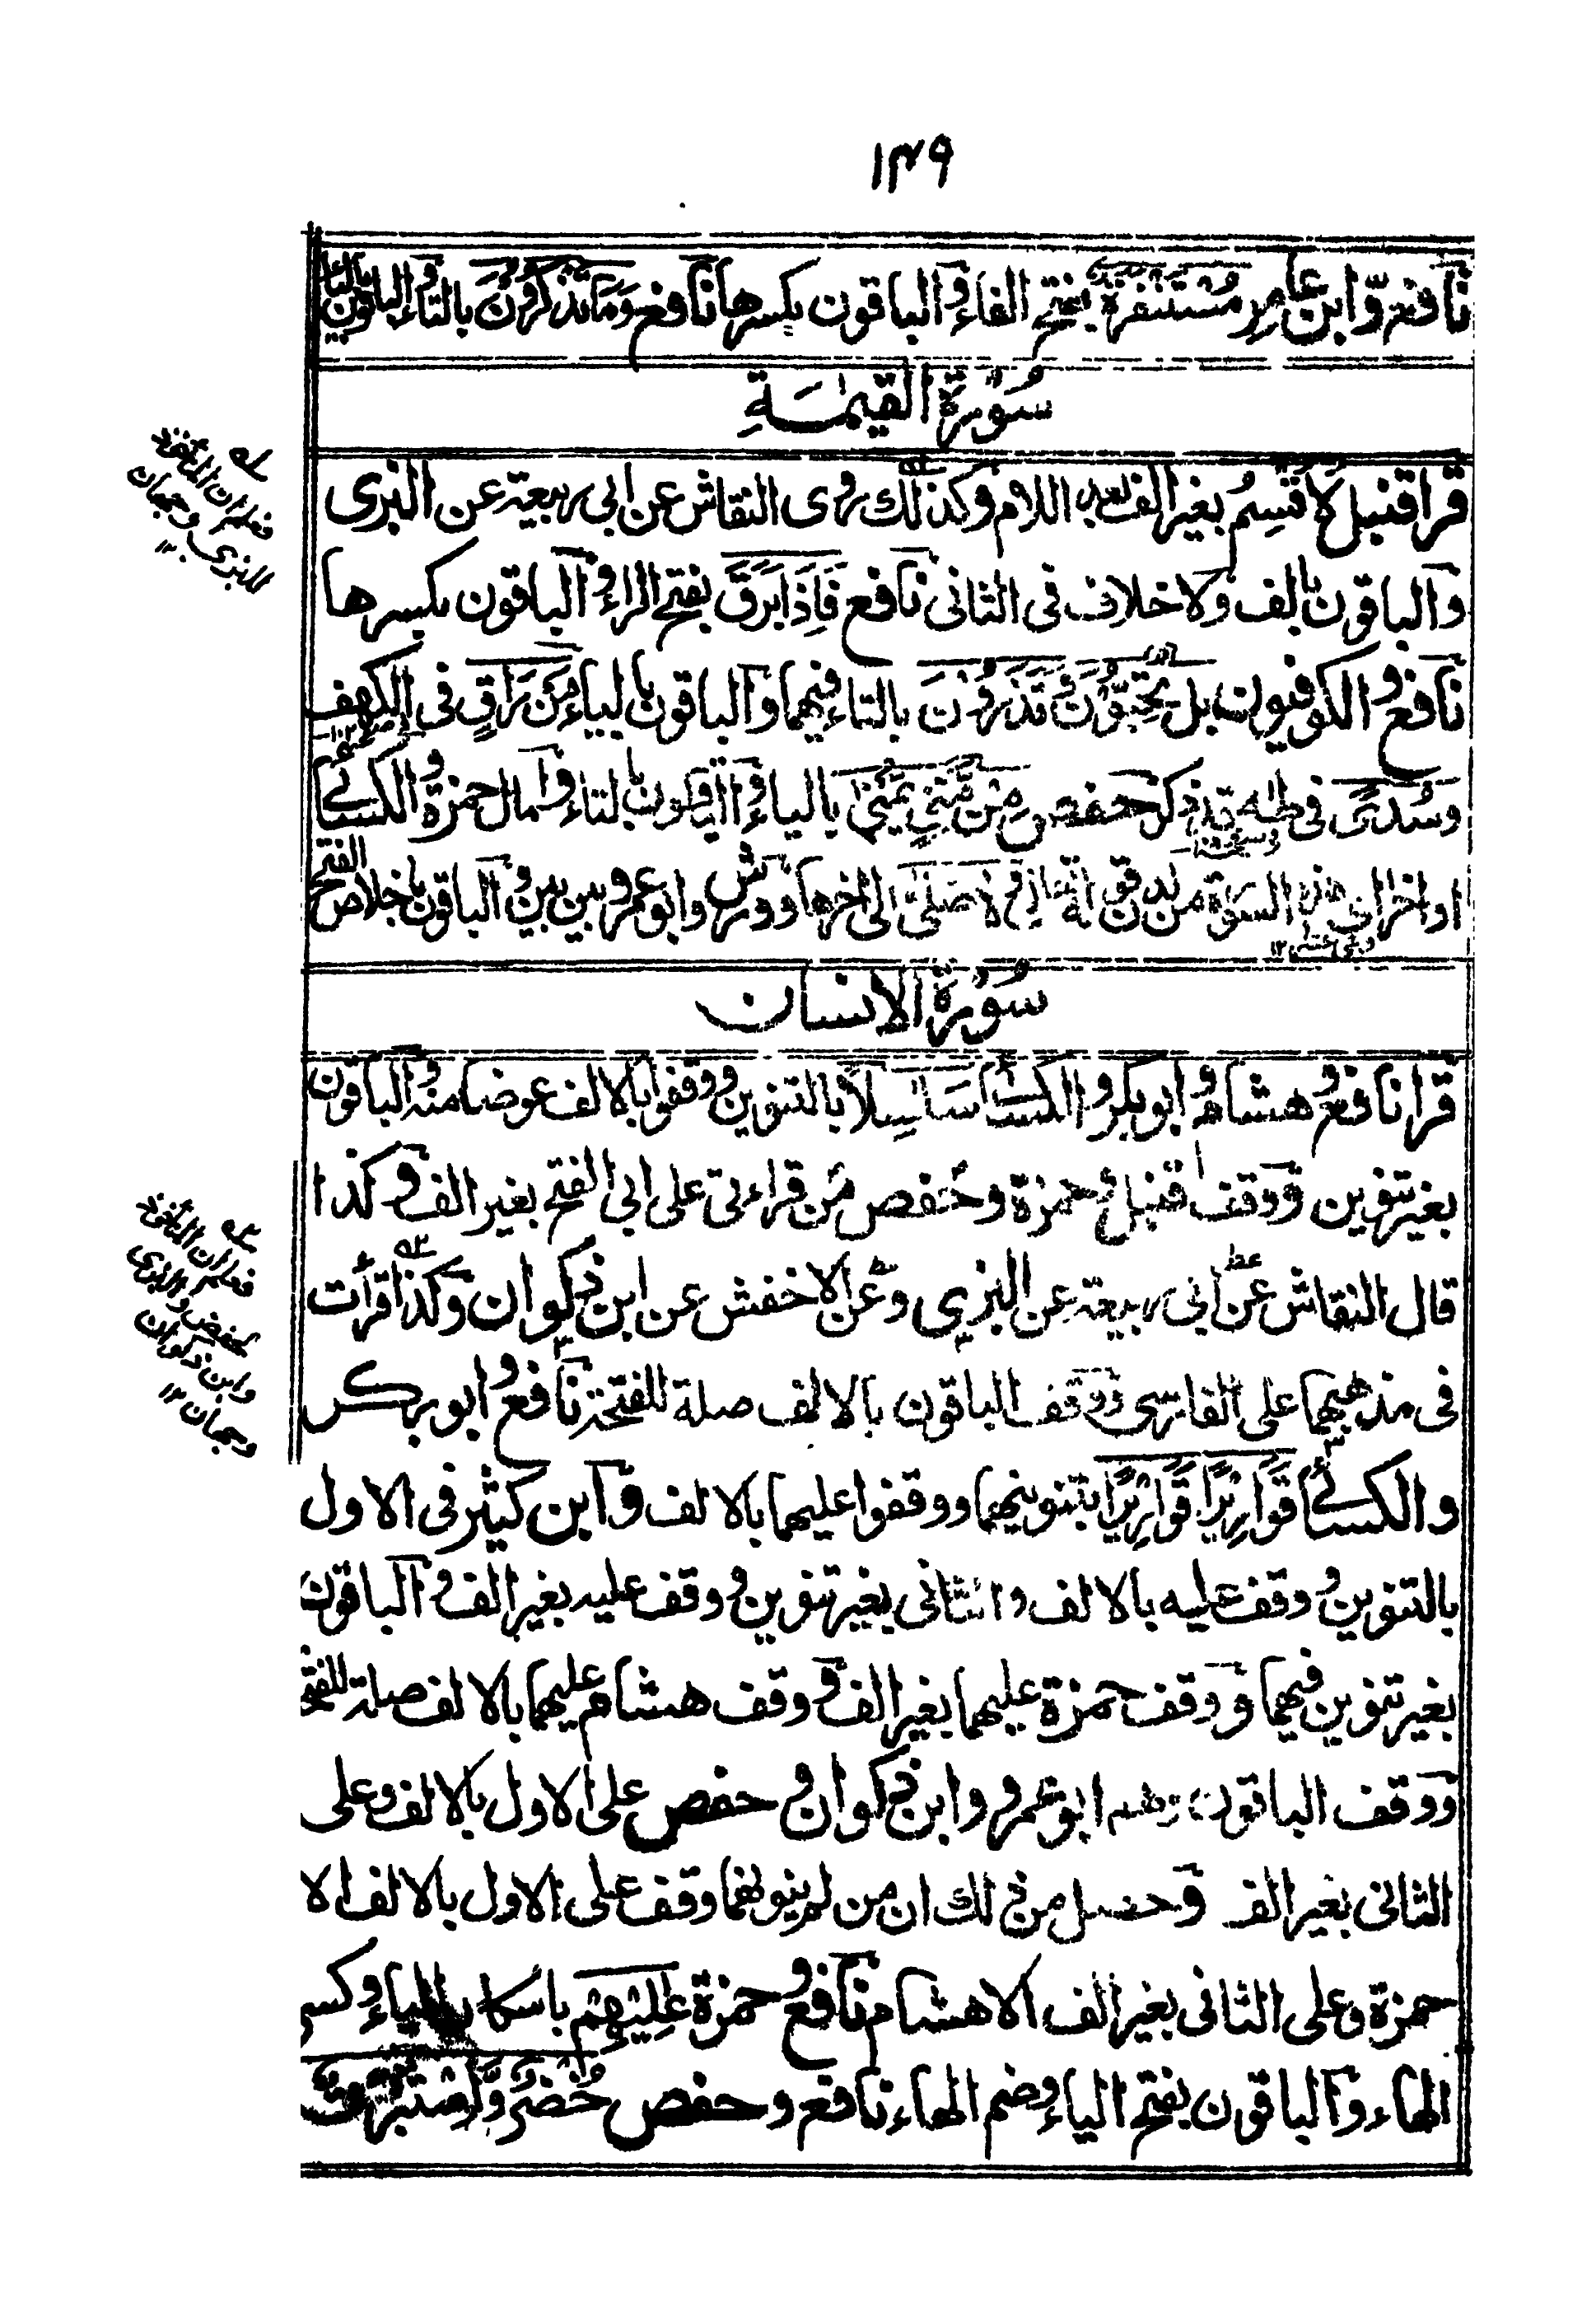 ١٣٩
نافع وابن عامر مُسْتَنْفَرَة بفتح الفاء والباقون بكسرها نافع وَمَا تَذْكُرُونَ بالتاء والباقون بالياء
سُوْرَةُ الْقِيٰمَةِ
قرا قنبل لَاُقْسِمُ بغير الف بعد اللام وكذلك روى النقاش عن ابى ربيعة عن البزى
والباقون بالف ولا خلاف فى الثانى نافع فَاِذَا بَرَقَ بفتح الراء والباقون بكسرها
نافع والكوفيون بل تُحِبُّوْنَ وَتَذَرُوْنَ بالتاء فيهما والباقون بالياء مَنْ رَاقٍ فى الكهف
وَسُدًى فى طه قد ذكر حفص مِنْ مَّنِيٍّ يُّمْنٰى بالياء والباقون بالتاء وامال حمزة والكسائى
اواخر اى هذه السورة من لدن قوله تعالى وَلَا صَلّٰى الى اخرها وورش وابو عمرو بين بين والباقون باخلاص الفتح
سُوْرَةُ الْاِنسان
قرا نافع وهشام وابو بكر والكسائى سَلَاسِلًا بالتنوين ووقفوا بالالف عوضا منه والباقون
بغير تنوين ووقف قنبل وحمزة وحفص من قراءتى على ابى الفتح بغير الف وكذا
قال النقاش عن ابى ربيعة عن البزى وعن الاخفش عن ابن ذكوان وكذا قرأت
فى مذهبهما على الفارسى ووقف الباقون بالالف صلة للفتحة نافع وابو بكر
والكسائى قَوَارِيْرًا قَوَارِيْرًا بتنوينهما ووقفوا عليهما بالالف وابن كثير فى الاول
بالتنوين ووقف عليه بالالف والثانى بغير تنوين ووقف عليه بغير الف والباقون
بغير تنوين فيهما ووقف حمزة عليهما بغير الف ووقف هشام عليهما بالالف صلة للفتحة
ووقف الباقون وهم ابو عمرو وابن ذكوان وحفص على الاول بالالف وعلى
الثانى بغير الف وحصل من ذلك ان من لم ينونهما وقف على الاول بالالف الا
حمزة وعلى الثانى بغير الف الا هشام نافع وحمزة عٰلِيْهِمْ باسكان الياء وكسر
الهاء والباقون بفتح الياء وضم الهاء نافع وحفص خُضْرٌ وَّاِسْتَبْرَقٌ
فعلم ان الماخوذ
للبزى وجهان
١٢
فعلم ان الماخوذ
لحفص والبزى
وابن ذكوان
وجهان ١٢